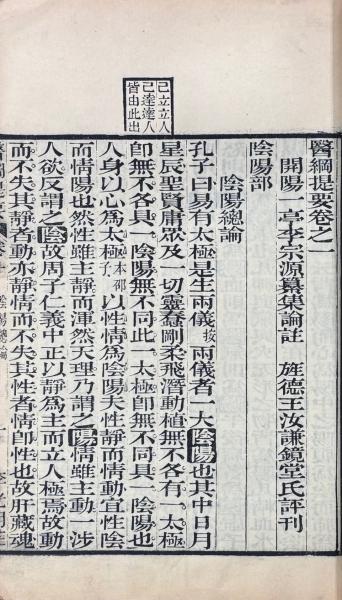 己立立人
己達達人
皆由此出
醫綱提要卷之一
開陽一亭李宗源纂集論註 旌德王汝謙鏡堂氏評刊
陰陽部
陰陽總論
孔子曰易有太極是生兩儀按兩儀者一大陰陽也其中日月
星辰聖賢庸衆及一切靈蠢剛柔飛潛動植無不各有一太極
卽無不各具一陰陽無不同此一太極卽無不同具一陰陽也
人身以心爲太極本邵子以性情爲陰陽夫性靜而情動宜性陰
而情陽也然性雖主靜而渾然天理乃謂之陽情雖主動一涉
人欲反謂之陰故周子仁義中正以靜爲主而立人極焉故動
而不失其靜者動亦靜情而不失其性者情卽性也故肝藏魂